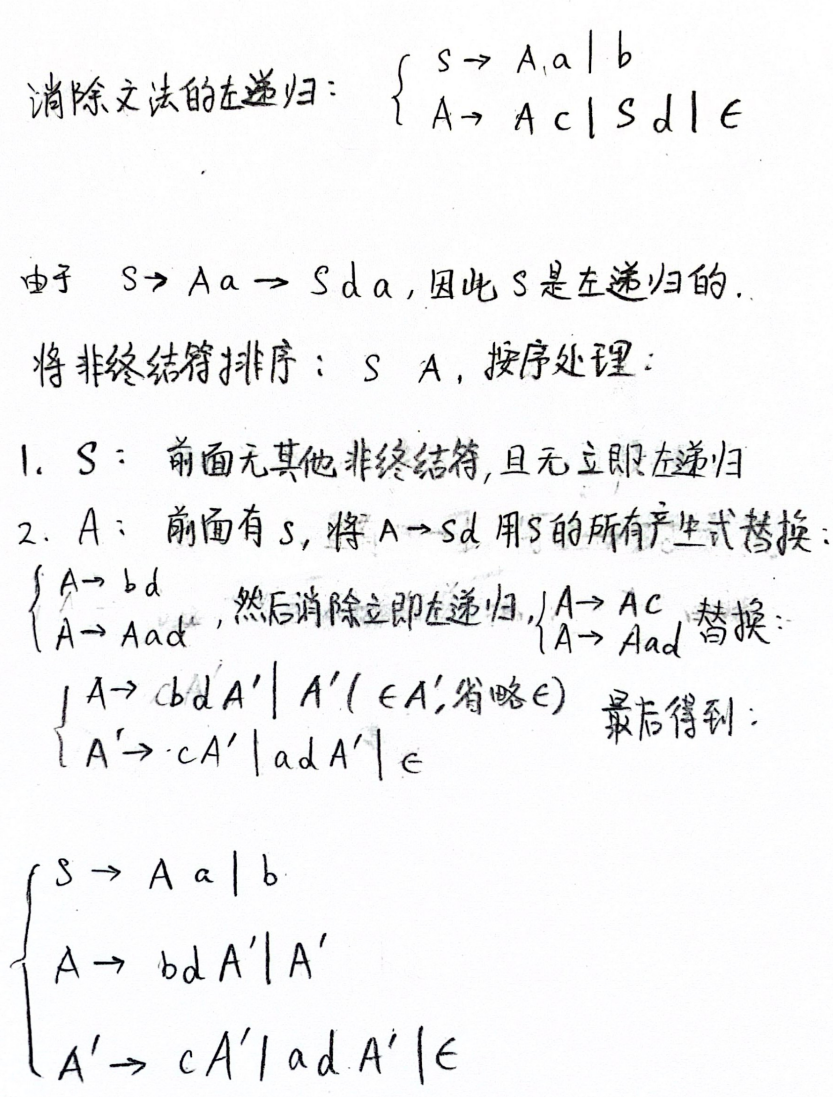 消除文法的左递归: { S → Aa | b
A → A c | S d | ϵ
由于 S → A a → S d a, 因此 S 是左递归的.
将非终结符排序: S A, 按序处理:
1. S: 前面无其他非终结符, 且无立即左递归
2. A: 前面有 S, 将 A → Sd 用 S 的所有产生式替换:
{ A → bd
A → Aad , 然后消除立即左递归, { A → AC
A → Aad 替换:
{ A → bd A' | A' ( ϵA', 省略 ϵ)
A' → cA' | ad A' | ϵ 最后得到:
{ S → A a | b
A → bd A' | A'
A' → c A' | ad A' | ϵ